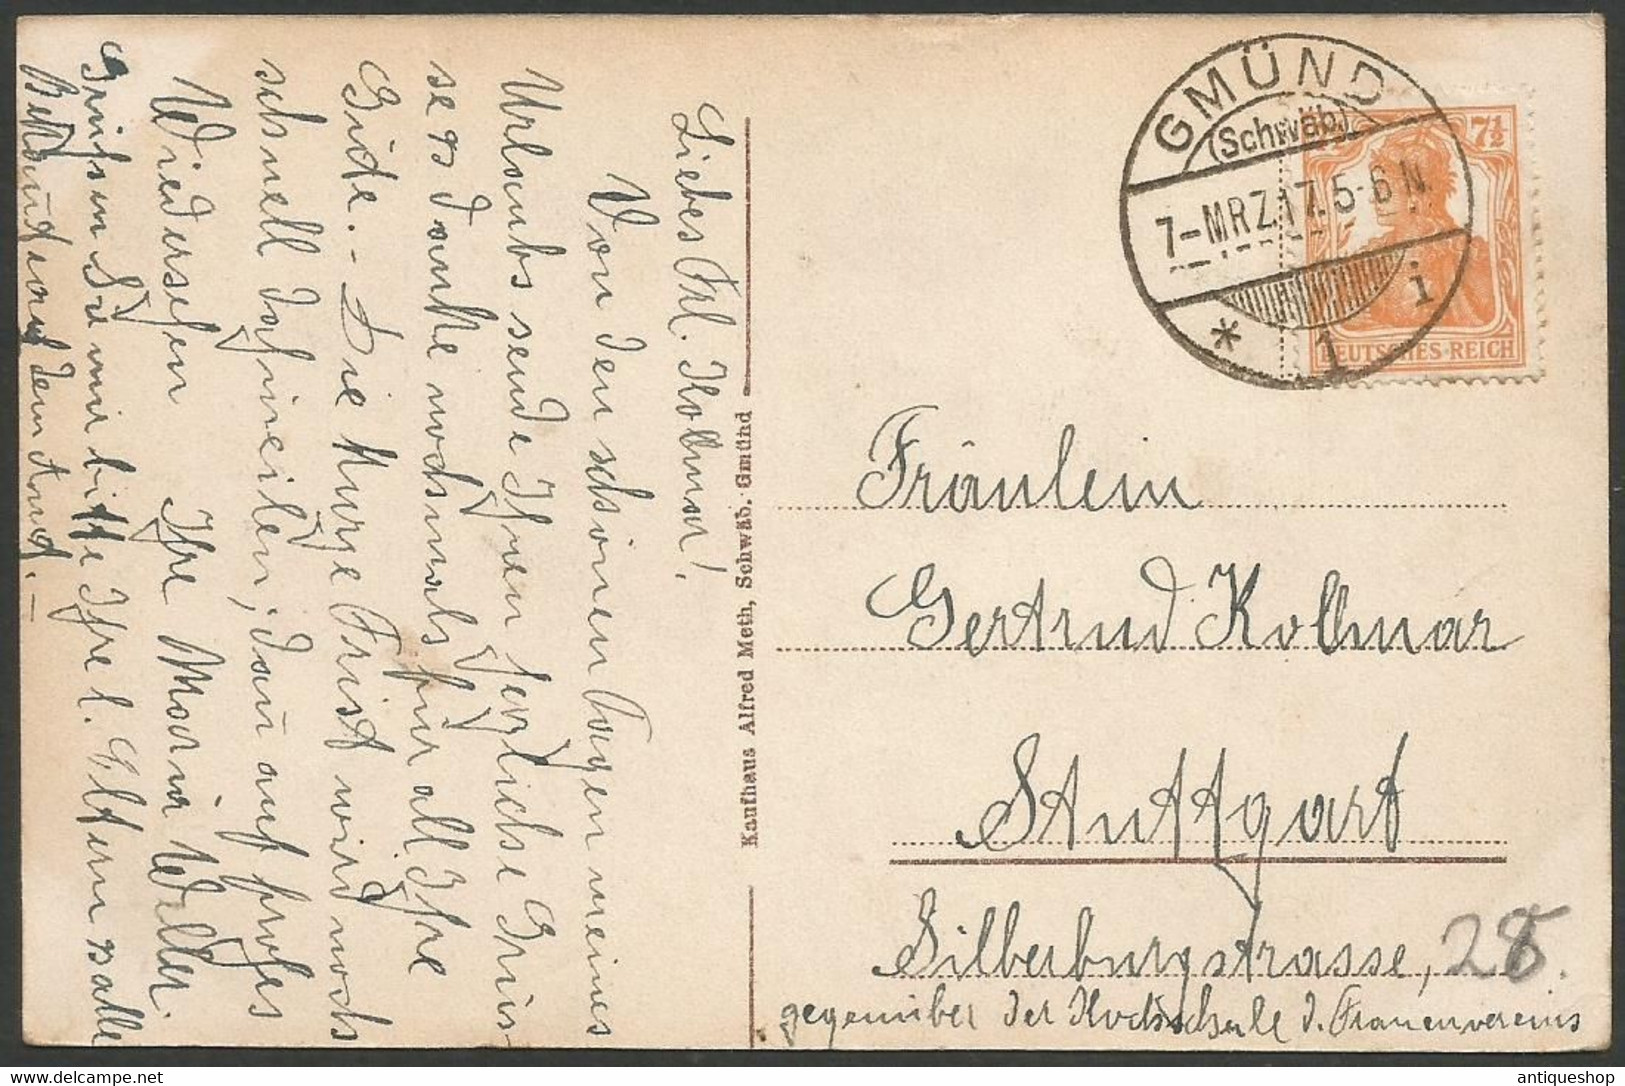 Liebes Frl. Kollmar!
Von den schönen Tagen meines
Urlaubs sende Ihnen herzliche Grüs-
se u. danke nochmals für all Ihre
Güte. – Die kurze Frist wird noch
schnell dahineilen; dañ auf frohes
Wiedersehen Ihre Maria Weller.
Grüssen Sie mir bitte Ihre l. Eltern u. alle
Bekañten auf dem Amt. –
Kaufhaus Alfred Meth, Schwäb. Gmünd
GMÜND
(Schwäb.)
7-MRZ.17.5-6 N.
* 1 i
7½
DEUTSCHES REICH
Fräulein
Gertrud Kollmar
Stuttgart
Silberburgstrasse, 28.
gegenüber der Kochschule d. Frauenvereins
antiqueshop